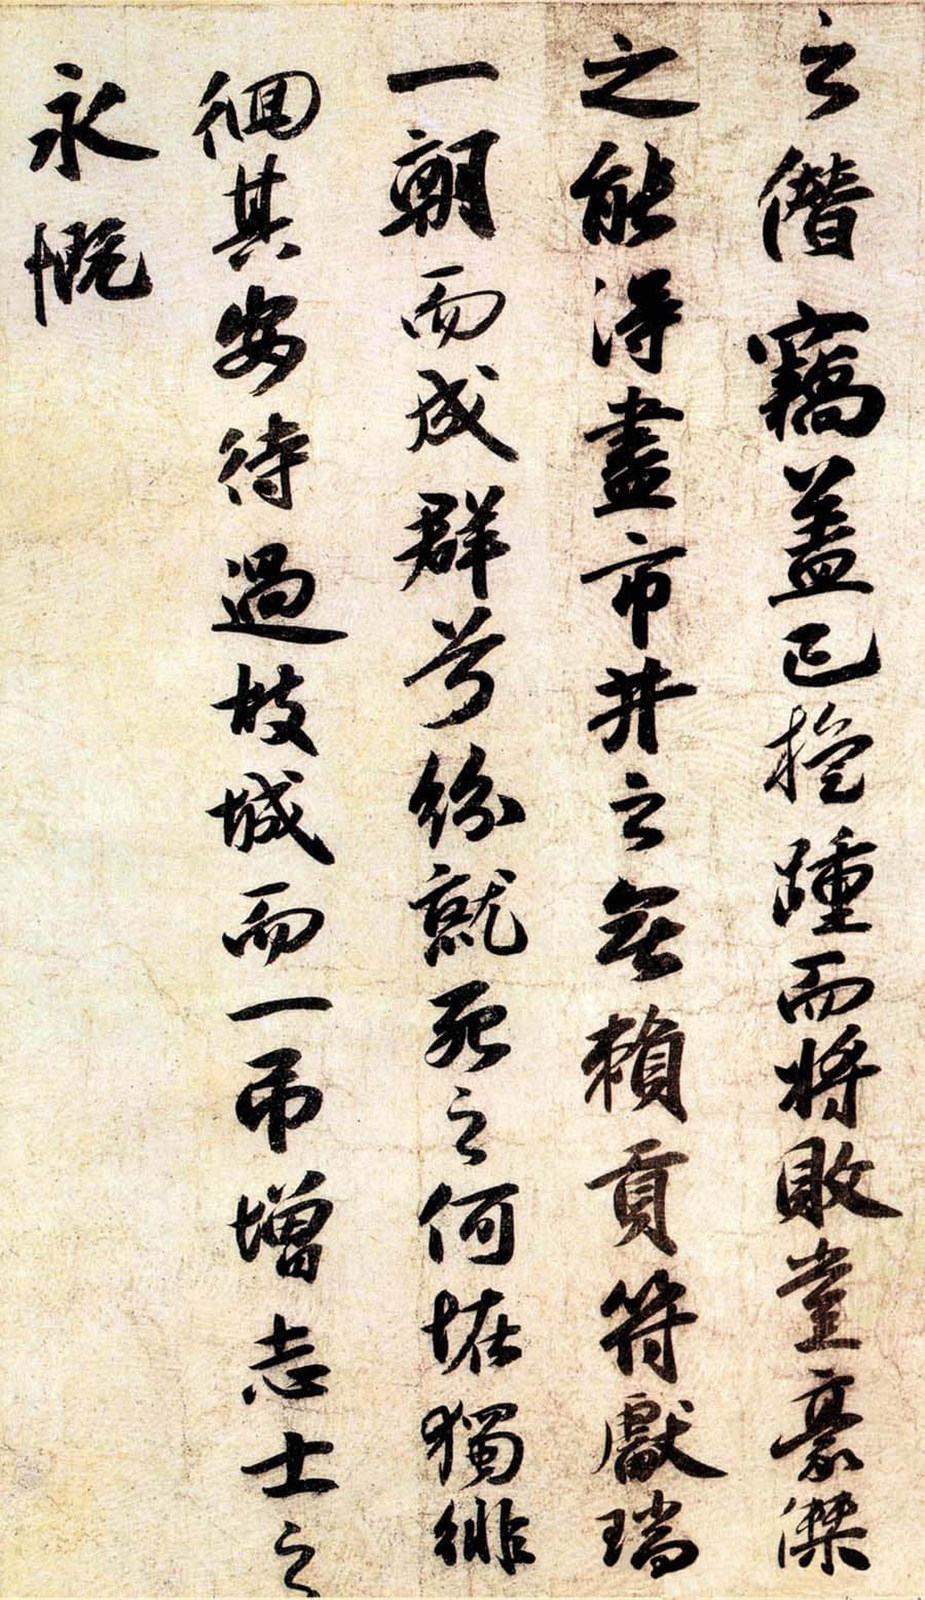 之僭竊盖已旋踵而将敗豈豪傑
之能得盡市井之無賴貢符獻瑞
一朝而成群兮紛就死之何恠獨徘
徊其安待過故城而一吊增志士之
永慨